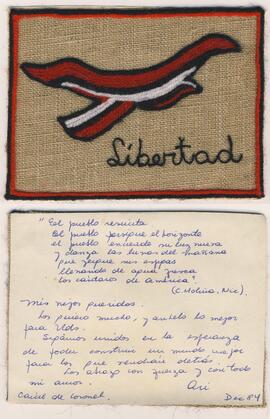 Libertad
"El pueblo resucita
El pueblo persigue el horizonte
el pueblo enciende su luz nueva
y danza las lunas del mañana
que
llenando de agua fresca
los cántaros de américa"
(C. Molina, Nic.)
Mis viejos queridos.
Los quiero mucho, y anhelo lo mejor
para Uds.
Sigamos unidos en la esperanza
de poder construir un mundo mejor
para los que vendrán detrás.
Los abrazo con fuerza y con todo
mi amor.
Ari
Cárcel de Coronel.
Dic 84